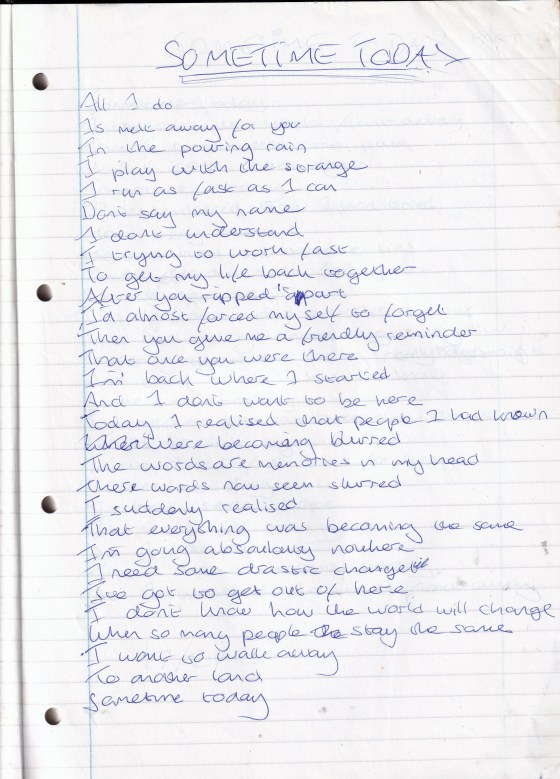 SOMETIME TODAY
All I do
Is melt away for you
In the pouring rain
I play with the strange
I run as fast as I can
Dont say my name
I dont understand
I trying to work fast
To get my life back together
After you ripped it apart
I'd almost forced myself to forget
Then you gave me a friendly reminder
That once you were there
I'm back where I started
And I dont want to be here
Today I realised that people I had known
were becoming blurred
The words are memories in my head
there words now seem slurred
I suddenly realised
That everything was becoming the same
I'm going absoulouley nowhere
I need some drastic change
I've got to get out of here
I dont know how the world will change
When so many people stay the same
I want to walk away
To another land
Sometime today